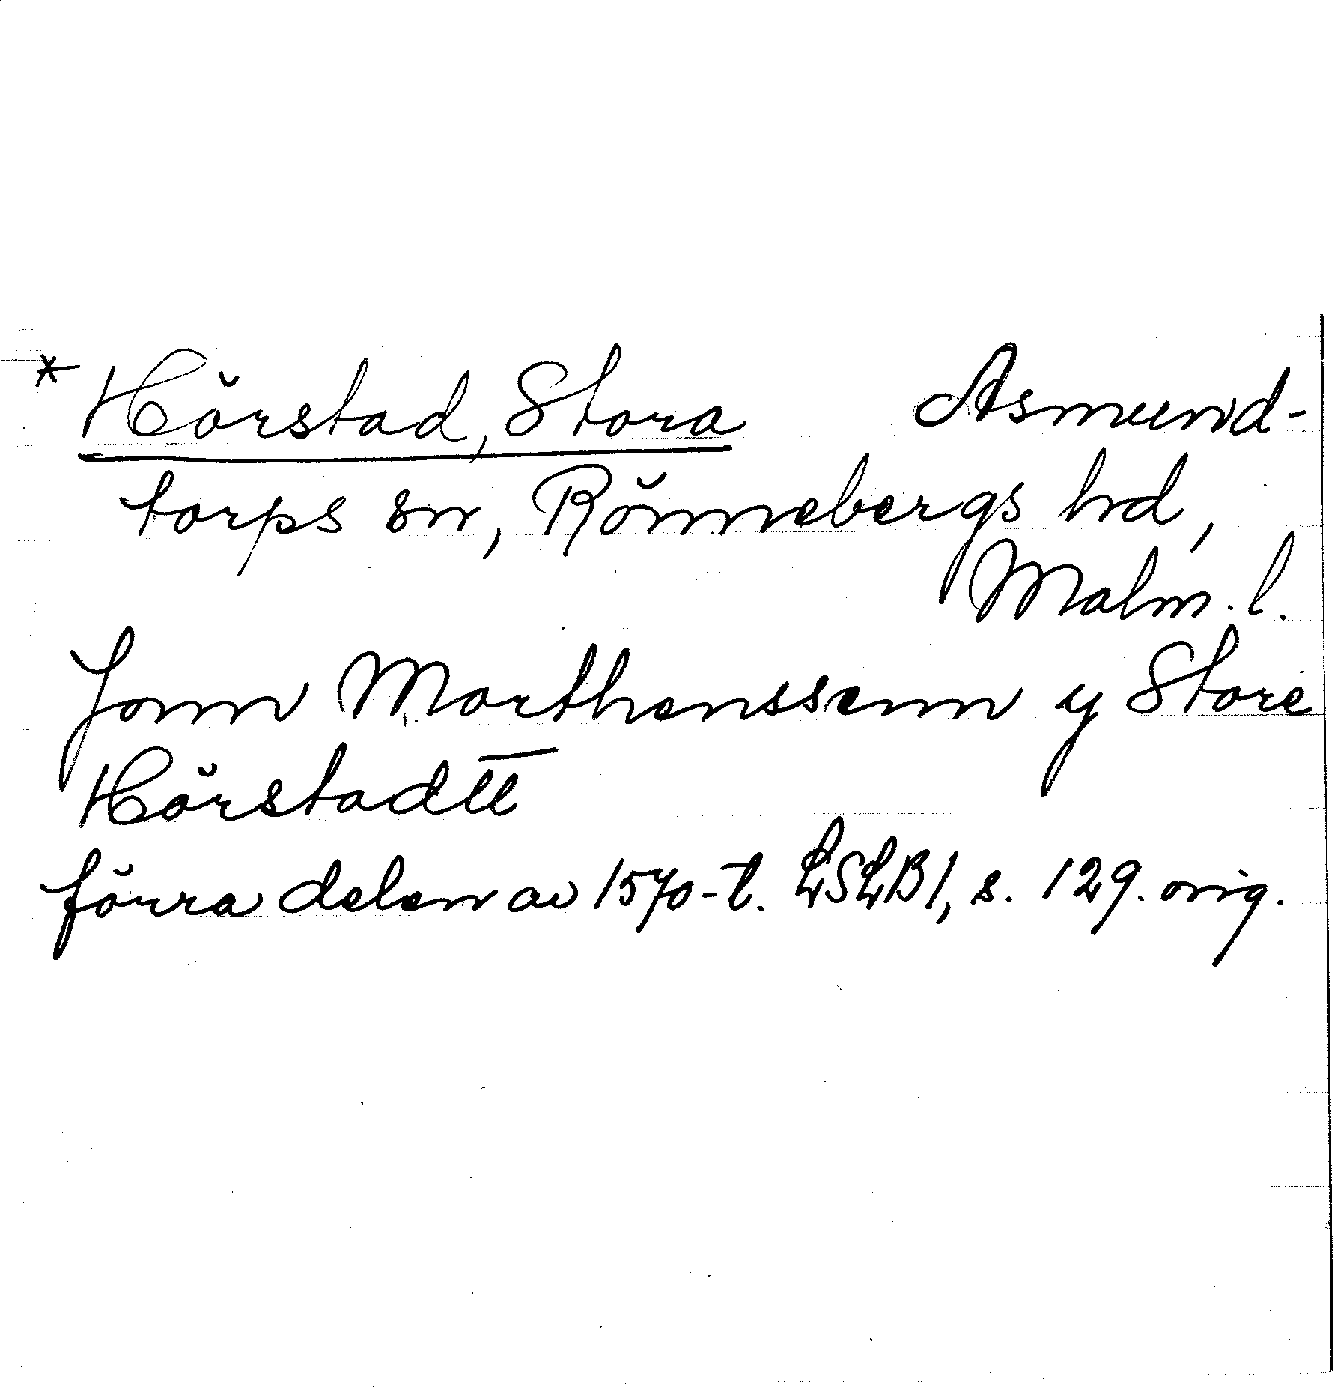 * Hörstad, Stora Asmund-
torps sn, Rönnebergs hd,
Malm. l.
Jonn Morthenssenn y Store
Hörstadtt
förra delen av 1570-t. LSLB 1, s. 129. orig.